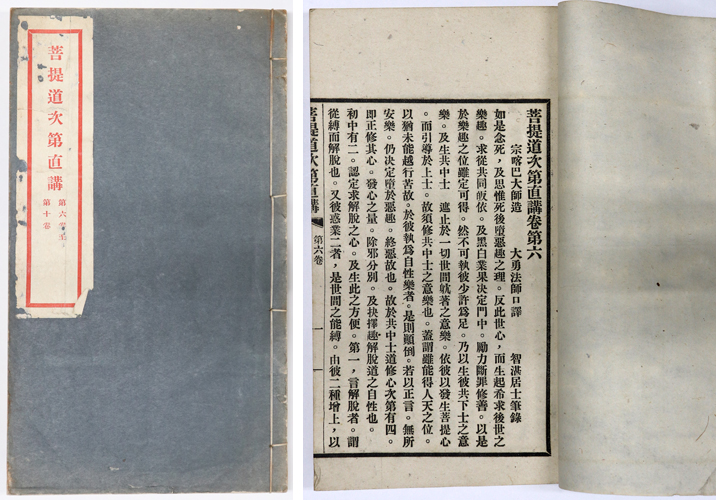 菩提道次第直講
第六卷至
第十卷
菩提道次第直講卷第六
宗喀巴大師造 大勇法師口譯 智湛居士筆錄
如是念死，及思惟死後墮惡趣之理。反此世心，而生起希求後世之
樂趣。求從共同皈依。及黑白業果決定門中。勵力斷罪修善。以是
於樂趣之位雖定可得。然不可執彼少許爲足。乃以生彼共下士之意
樂。及生共中士 遮止於一切世間躭著之意樂。依彼以發生菩提心
。而引導於上士。故須修共中士之意樂也。蓋謂雖能得人天之位。
以猶未能越行苦故。於彼執爲自性樂者。是則顚倒。若以正言。無所
安樂。仍決定墮於惡趣。終惡故也。故於共中士道修心次第有四。
即正修其心。發心之量。除邪分別。及抉擇趣解脫道之自性也。
初中有二。認定求解脫之心。及生此之方便。第一，言解脫者。謂
從縛而解脫也。又彼惑業二者，是世間之能縛。由彼二種增上，以
菩提道次第直講 第六卷